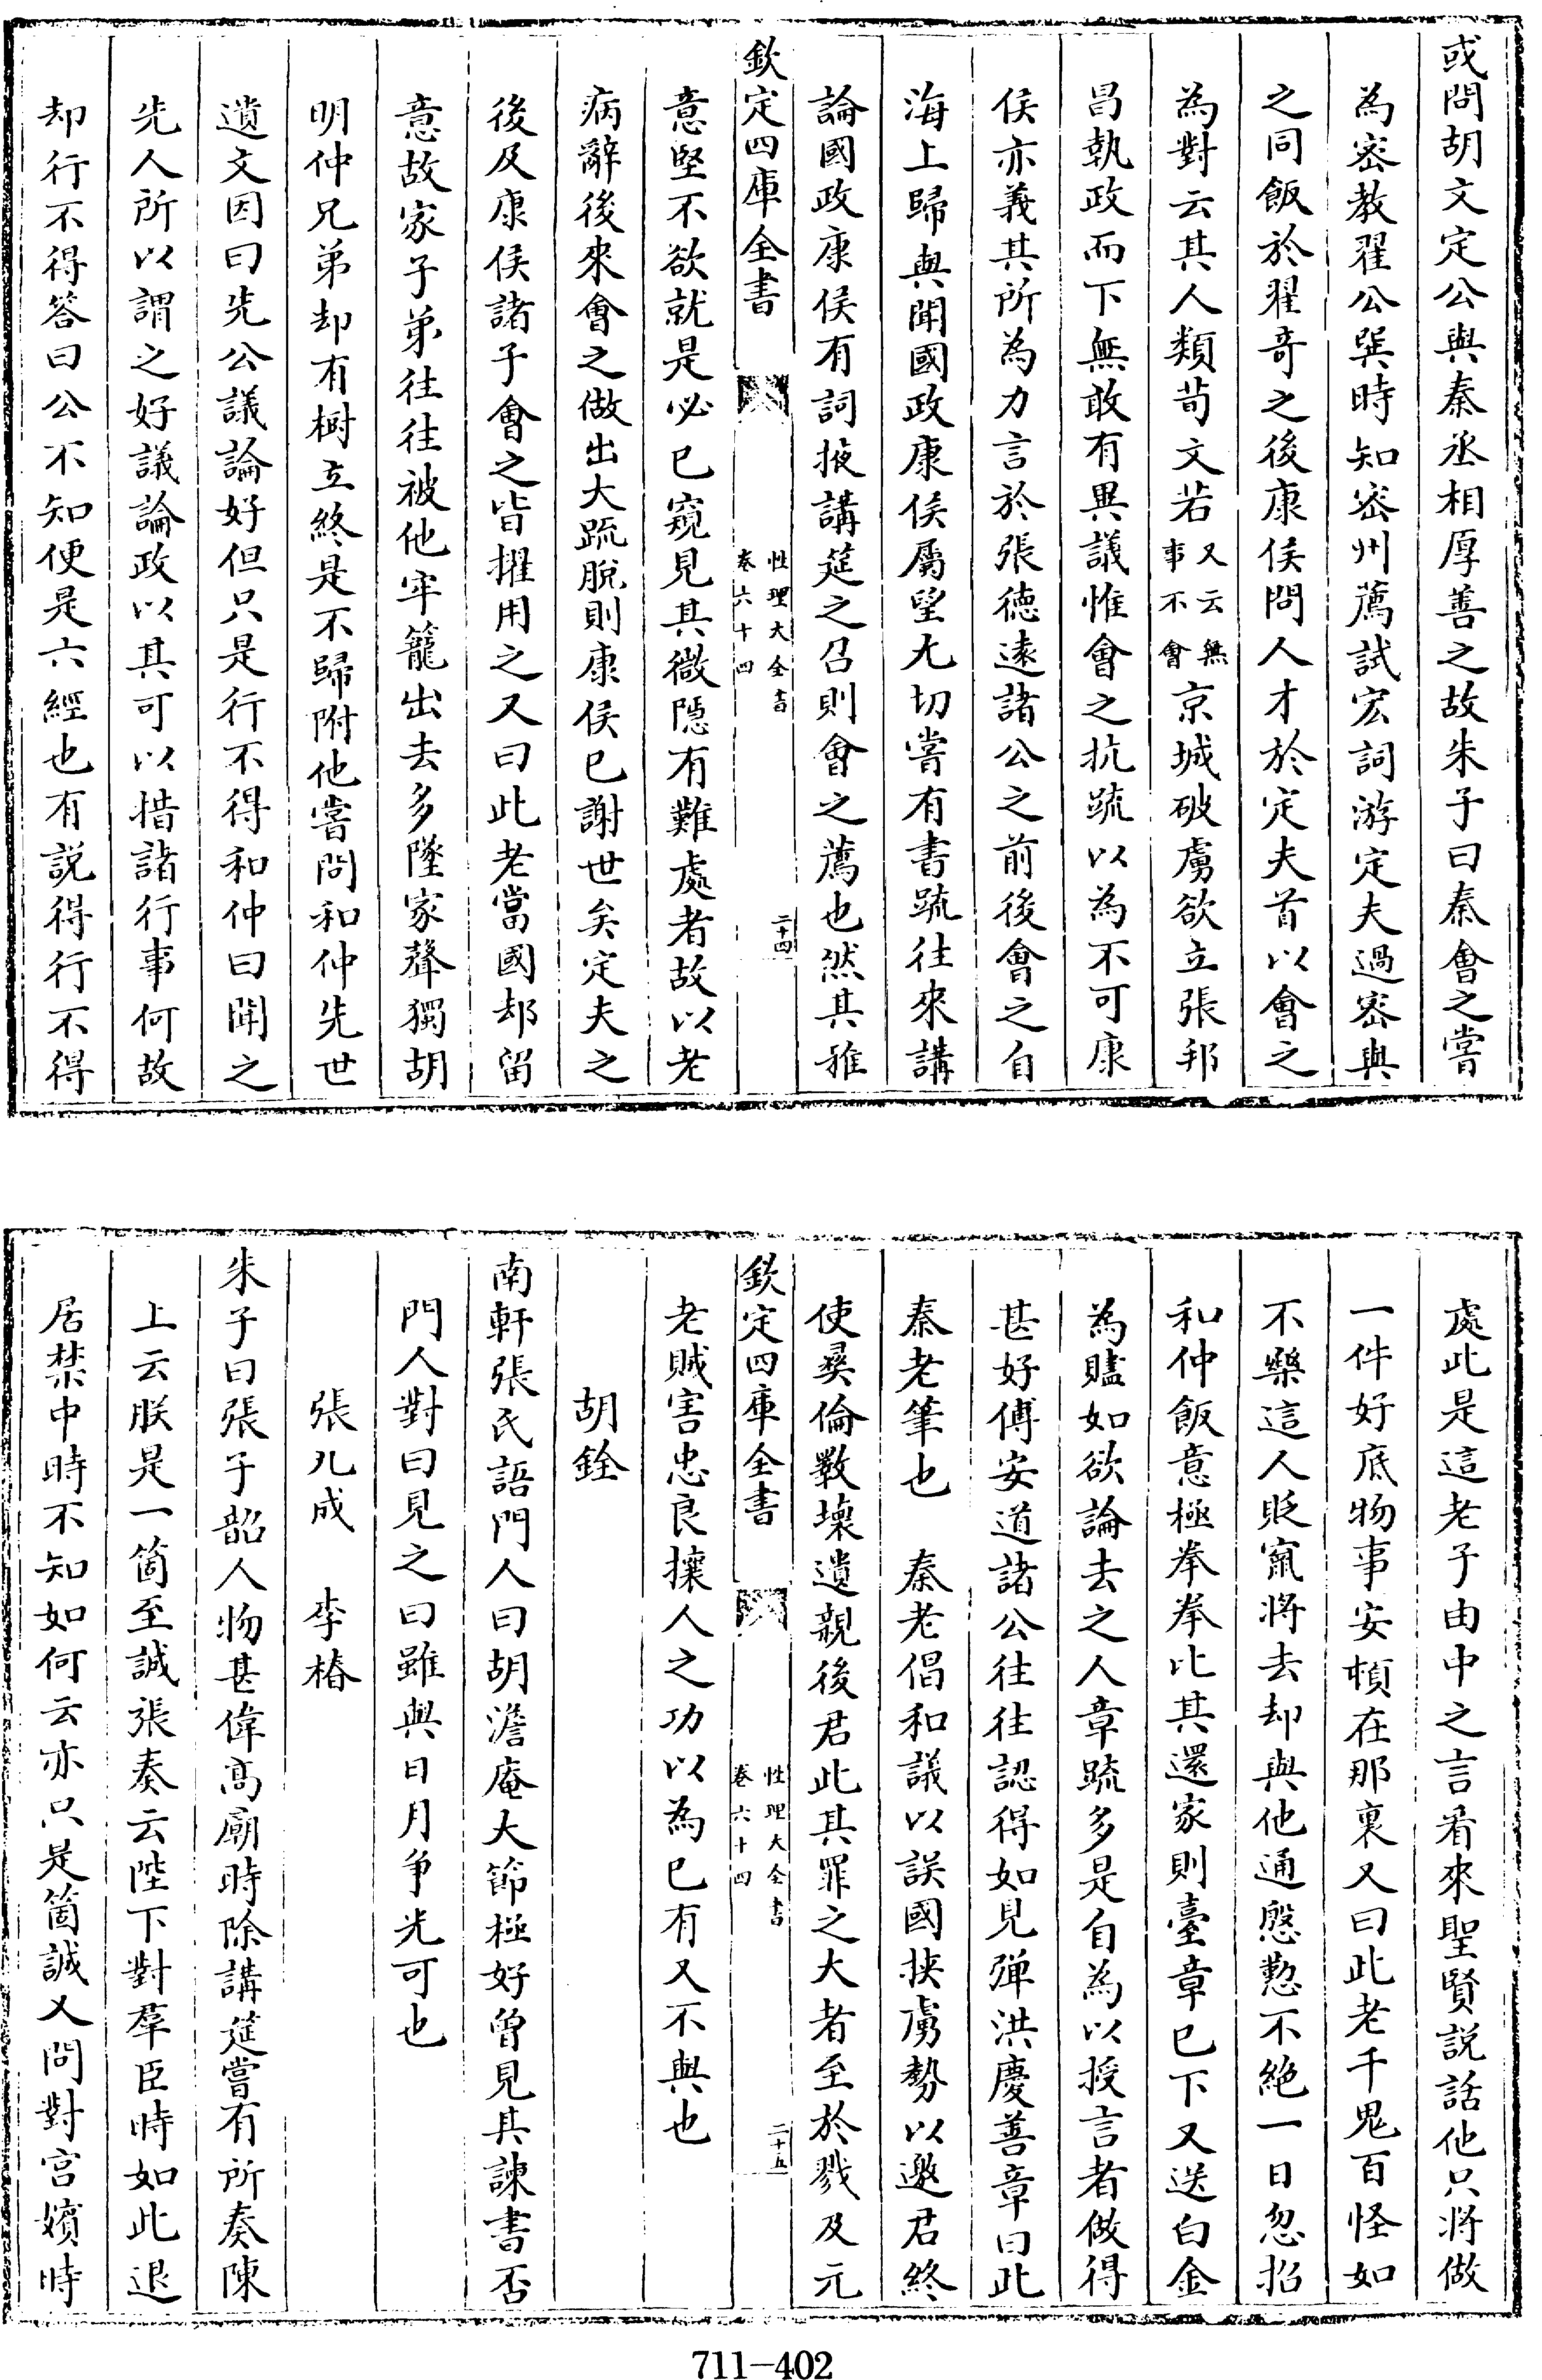 或問胡文定公與秦丞相厚善之故朱子曰秦會之嘗
為密教翟公巽時知密州薦試宏詞游定夫過密與
之同飯於翟奇之後康侯問人才於定夫首以會之
為對云其人類荀文若又云無事不會京城破虜欲立張邦
昌執政而下無敢有異議惟會之抗疏以為不可康
侯亦義其所為力言於張德遠諸公之前後會之自
海上歸與聞國政康侯屬望尤切嘗有書疏往來講
論國政康侯有詞掖講筵之召則會之薦也然其雅
欽定四庫全書
性理大全書
卷六十四
二十四
意堅不欲就是必已窺見其微隱有難處者故以老
病辭後來會之做出大疏脫則康侯已謝世矣定夫之
後及康侯諸子會之皆擢用之又曰此老當國却留
意故家子弟往往被他牢籠出去多墜家聲獨胡
明仲兄弟却有樹立終是不歸附他嘗問和仲先世
遺文因曰先公議論好但只是行不得和仲曰聞之
先人所以謂之好議論政以其可以措諸行事何故
却行不得答曰公不知便是六經也有說得行不得
處此是這老子由中之言看來聖賢說話他只將做
一件好底物事安頓在那裏又曰此老千鬼百怪如
不樂這人貶竄將去却與他通慇懃不絶一日忽招
和仲飯意極拳拳比其還家則臺章已下又送白金
為贐如欲論去之人章疏多是自為以授言者做得
甚好傅安道諸公往往認得如見彈洪慶善章曰此
秦老筆也　秦老倡和議以誤國挾虜勢以邀君終
使彛倫斁壞遺親後君此其罪之大者至於戮及元
欽定四庫全書
性理大全書
卷六十四
二十五
老賊害忠良攘人之功以為已有又不與也
胡銓
南軒張氏語門人曰胡澹庵大節極好曾見其諫書否
門人對曰見之曰雖與日月争光可也
張九成　李椿
朱子曰張子韶人物甚偉高廟時除講筵嘗有所奏陳
上云朕是一箇至誠張奏云陛下對羣臣時如此退
居禁中時不知如何云亦只是箇誠又問對宫嬪時
711-402